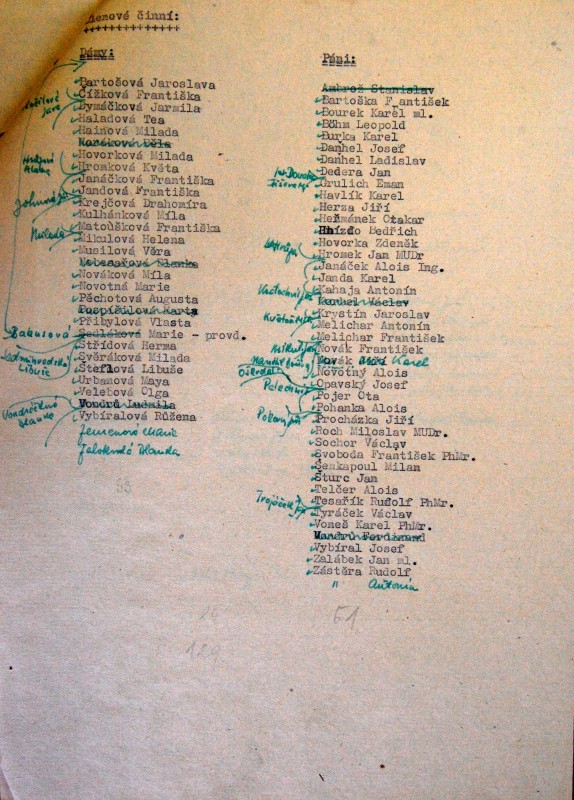 členové činní:
Dámy:
Bartošová Jaroslava
Čížková Františka
Dymáčková Jarmila
Haladová Tea
Hainová Milada
Horáková Běla
Hovorková Milada
Hromková Květa
Janáčková Františka
Jandová Františka
Krejčová Drahomíra
Kulhánková Míla
Matoušková Františka
Mikulová Helena
Musilová Věra
Nováková Míla
Novotná Marie
Pěchotová Augusta
Pospíšilová Marta
Přibylová Vlasta
Sedláková Marie - provd.
Bakusová
Střídová Herma
Svěráková Milada
Šteflová Libuše
Urbanová Maya
Velebová Olga
Vondrů Ludmila
Vybíralová Růžena
Páni:
Ambrož Stanislav
Bartoška F antišek
Bourek Karel ml.
Böhm Leopold
Burka Karel
Daňhel Josef
Daňhel Ladislav
Dedera Jan
Grulich Eman
Havlík Karel
Herza Jiří
Heřmánek Otakar
Hnízdo Bedřich
Hovorka Zdeněk
Hromek Jan MUDr
Janáček Alois Ing.
Janda Karel
Kahaja Antonín
Koukel Václav
Krystín Jaroslav
Melichar Antonín
Melichar František
Novák František
Novák Karel
Novotný Alois
Opavský Josef
Pojer Ota
Pohanka Alois
Procházka Jiří
Roch Miloslav MUDr.
Sochor Václav
Svoboda František PhMr.
Šenkapoul Milan
Šturc Jan
Telčer Alois
Tesařík Rudolf PhMr.
Tyráček Václav
Voneš Karel PhMr.
Vondrů Ferdinand
Vybíral Josef
Zalábek Jan ml.
Zástěra Rudolf
" Antonín
33
51
129